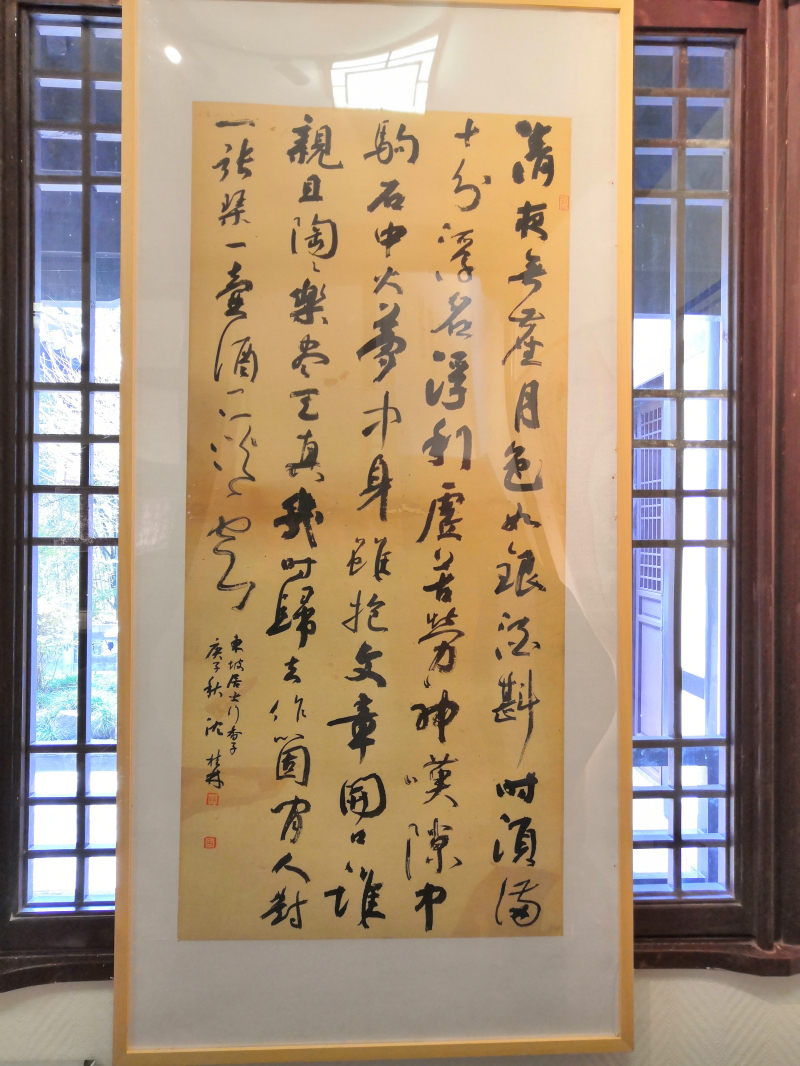 清夜無塵月色如銀酒斟时須滿
十分浮名浮利虛苦勞神嘆隙中
駒石中火夢中身雖抱文章開口誰
親且陶陶樂尽天真幾时歸去作箇閒人對
一張琴一壺酒一溪雲
東坡居士行香子
庚子秋 沈桂林